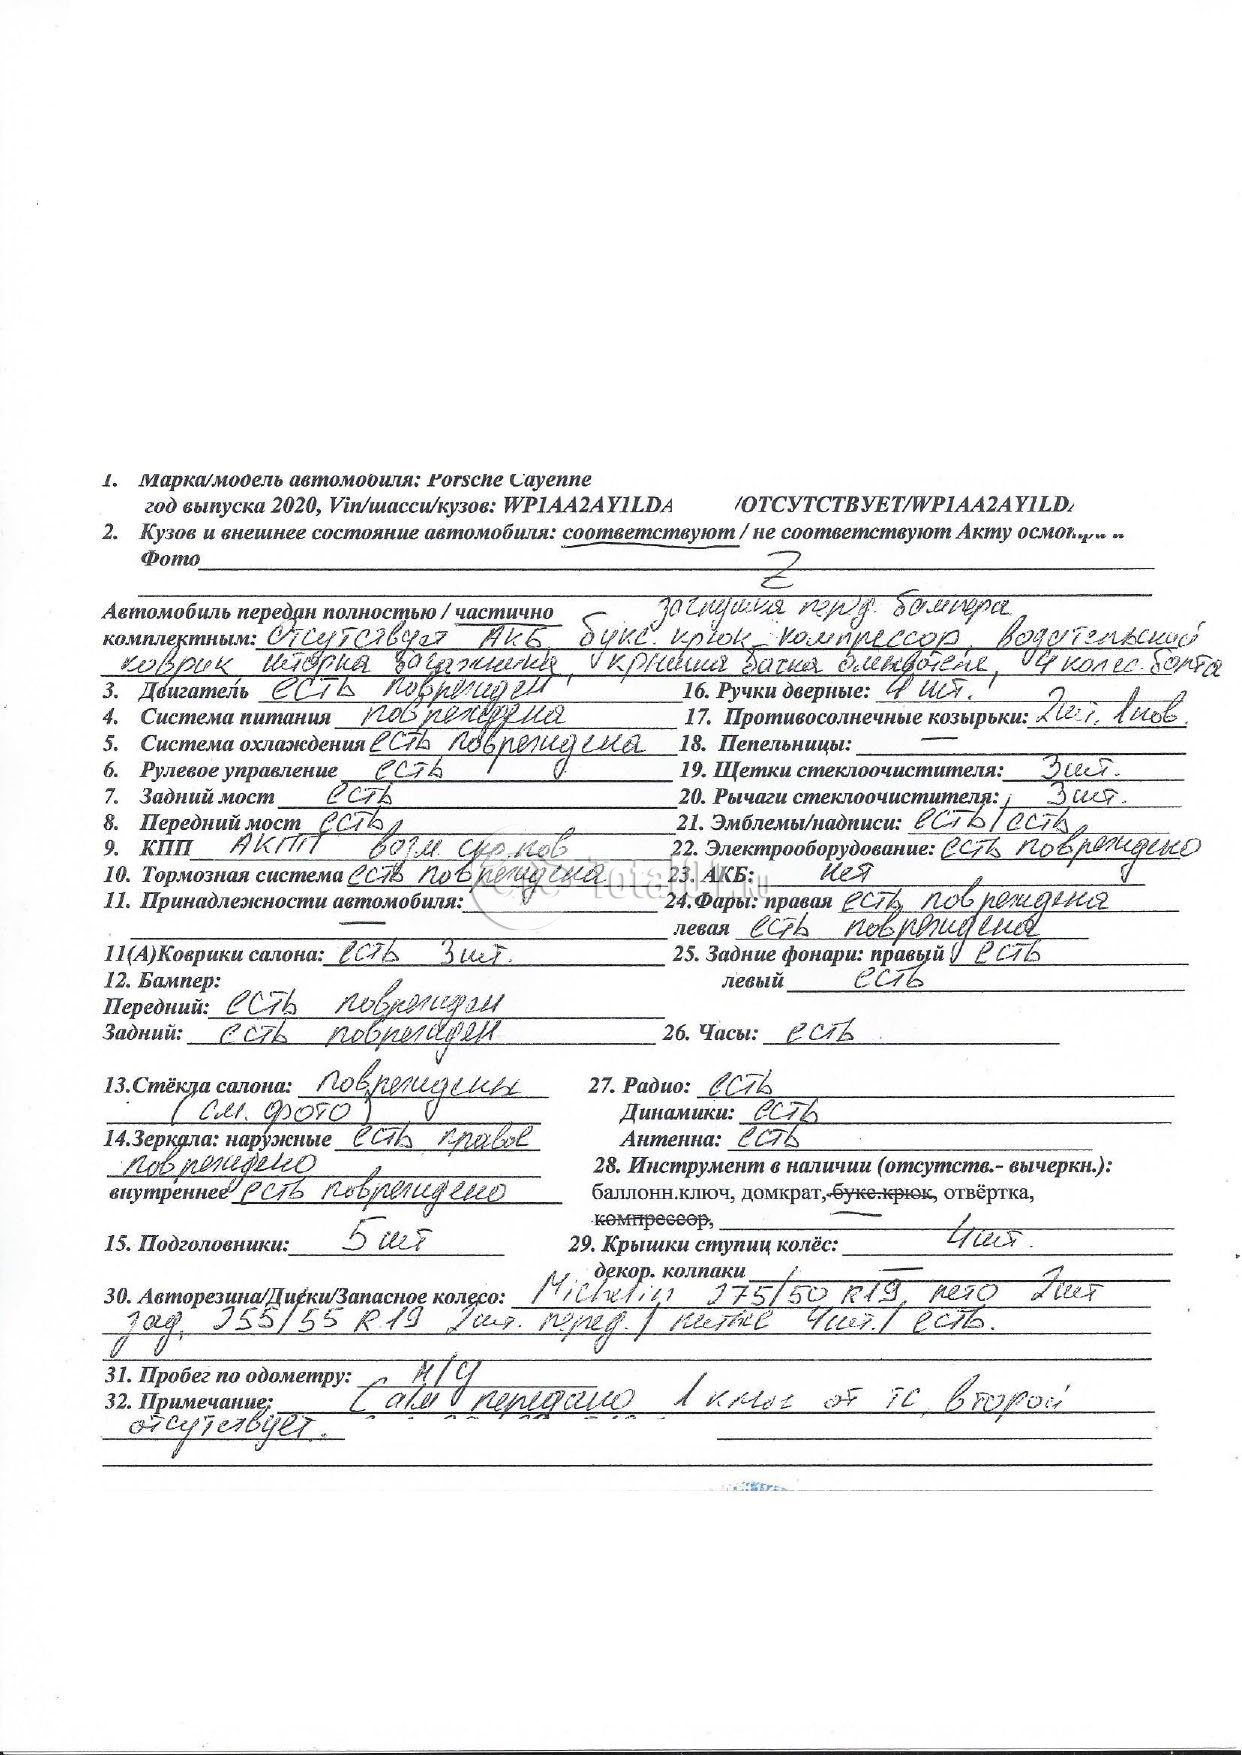 1. Марка/модель автомобиля: Porsche Cayenne
год выпуска 2020, Vin/шасси/кузов: WP1AA2AY1LDA /ОТСУТСТВУЕТ/WP1AA2AY1LD
2. Кузов и внешнее состояние автомобиля: соответствуют / не соответствуют Акту осмотра
Фото
Z
заглушка перед. бампера
Автомобиль передан полностью / частично
комплектным: Отсутствует АКБ, букс. крюк, компрессор, водительский
коврик, шторка багажника, крышка бачка омывателя, 4 колес. болта
3. Двигатель есть поврежден
4. Система питания повреждена
5. Система охлаждения есть повреждена
6. Рулевое управление есть
7. Задний мост есть
8. Передний мост есть
9. КПП АКПП возм. скр. пов
10. Тормозная система есть повреждена
11. Принадлежности автомобиля: —
11(А)Коврики салона: есть 3 шт.
12. Бампер:
Передний: есть поврежден
Задний: есть поврежден
13.Стёкла салона: повреждены
(см. фото)
14.Зеркала: наружные есть правое
повреждено
внутреннее есть повреждено
15. Подголовники: 5 шт
16. Ручки дверные: 4 шт.
17. Противосолнечные козырьки: 2 шт. 1 пов.
18. Пепельницы: —
19. Щетки стеклоочистителя: 3 шт.
20. Рычаги стеклоочистителя: 3 шт.
21. Эмблемы/надписи: есть/есть
22. Электрооборудование: есть повреждено
23. АКБ: нет
24.Фары: правая есть повреждена
левая есть повреждена
25. Задние фонари: правый есть
левый есть
26. Часы: есть
27. Радио: есть
Динамики: есть
Антенна: есть
28. Инструмент в наличии (отсутств.- вычеркн.):
баллонн.ключ, домкрат, букс.крюк, отвёртка,
компрессор, —
29. Крышки ступиц колёс: 4 шт.
декор. колпаки —
30. Авторезина/Диски/Запасное колесо: Michelin 275/50 R19, лето 2 шт
зад, 255/55 R19 2 шт. перед. / литые 4 шт. / есть.
31. Пробег по одометру: н/у
32. Примечание: передано 1 ключ от ТС, второй
отсутствует.
Total01.RU